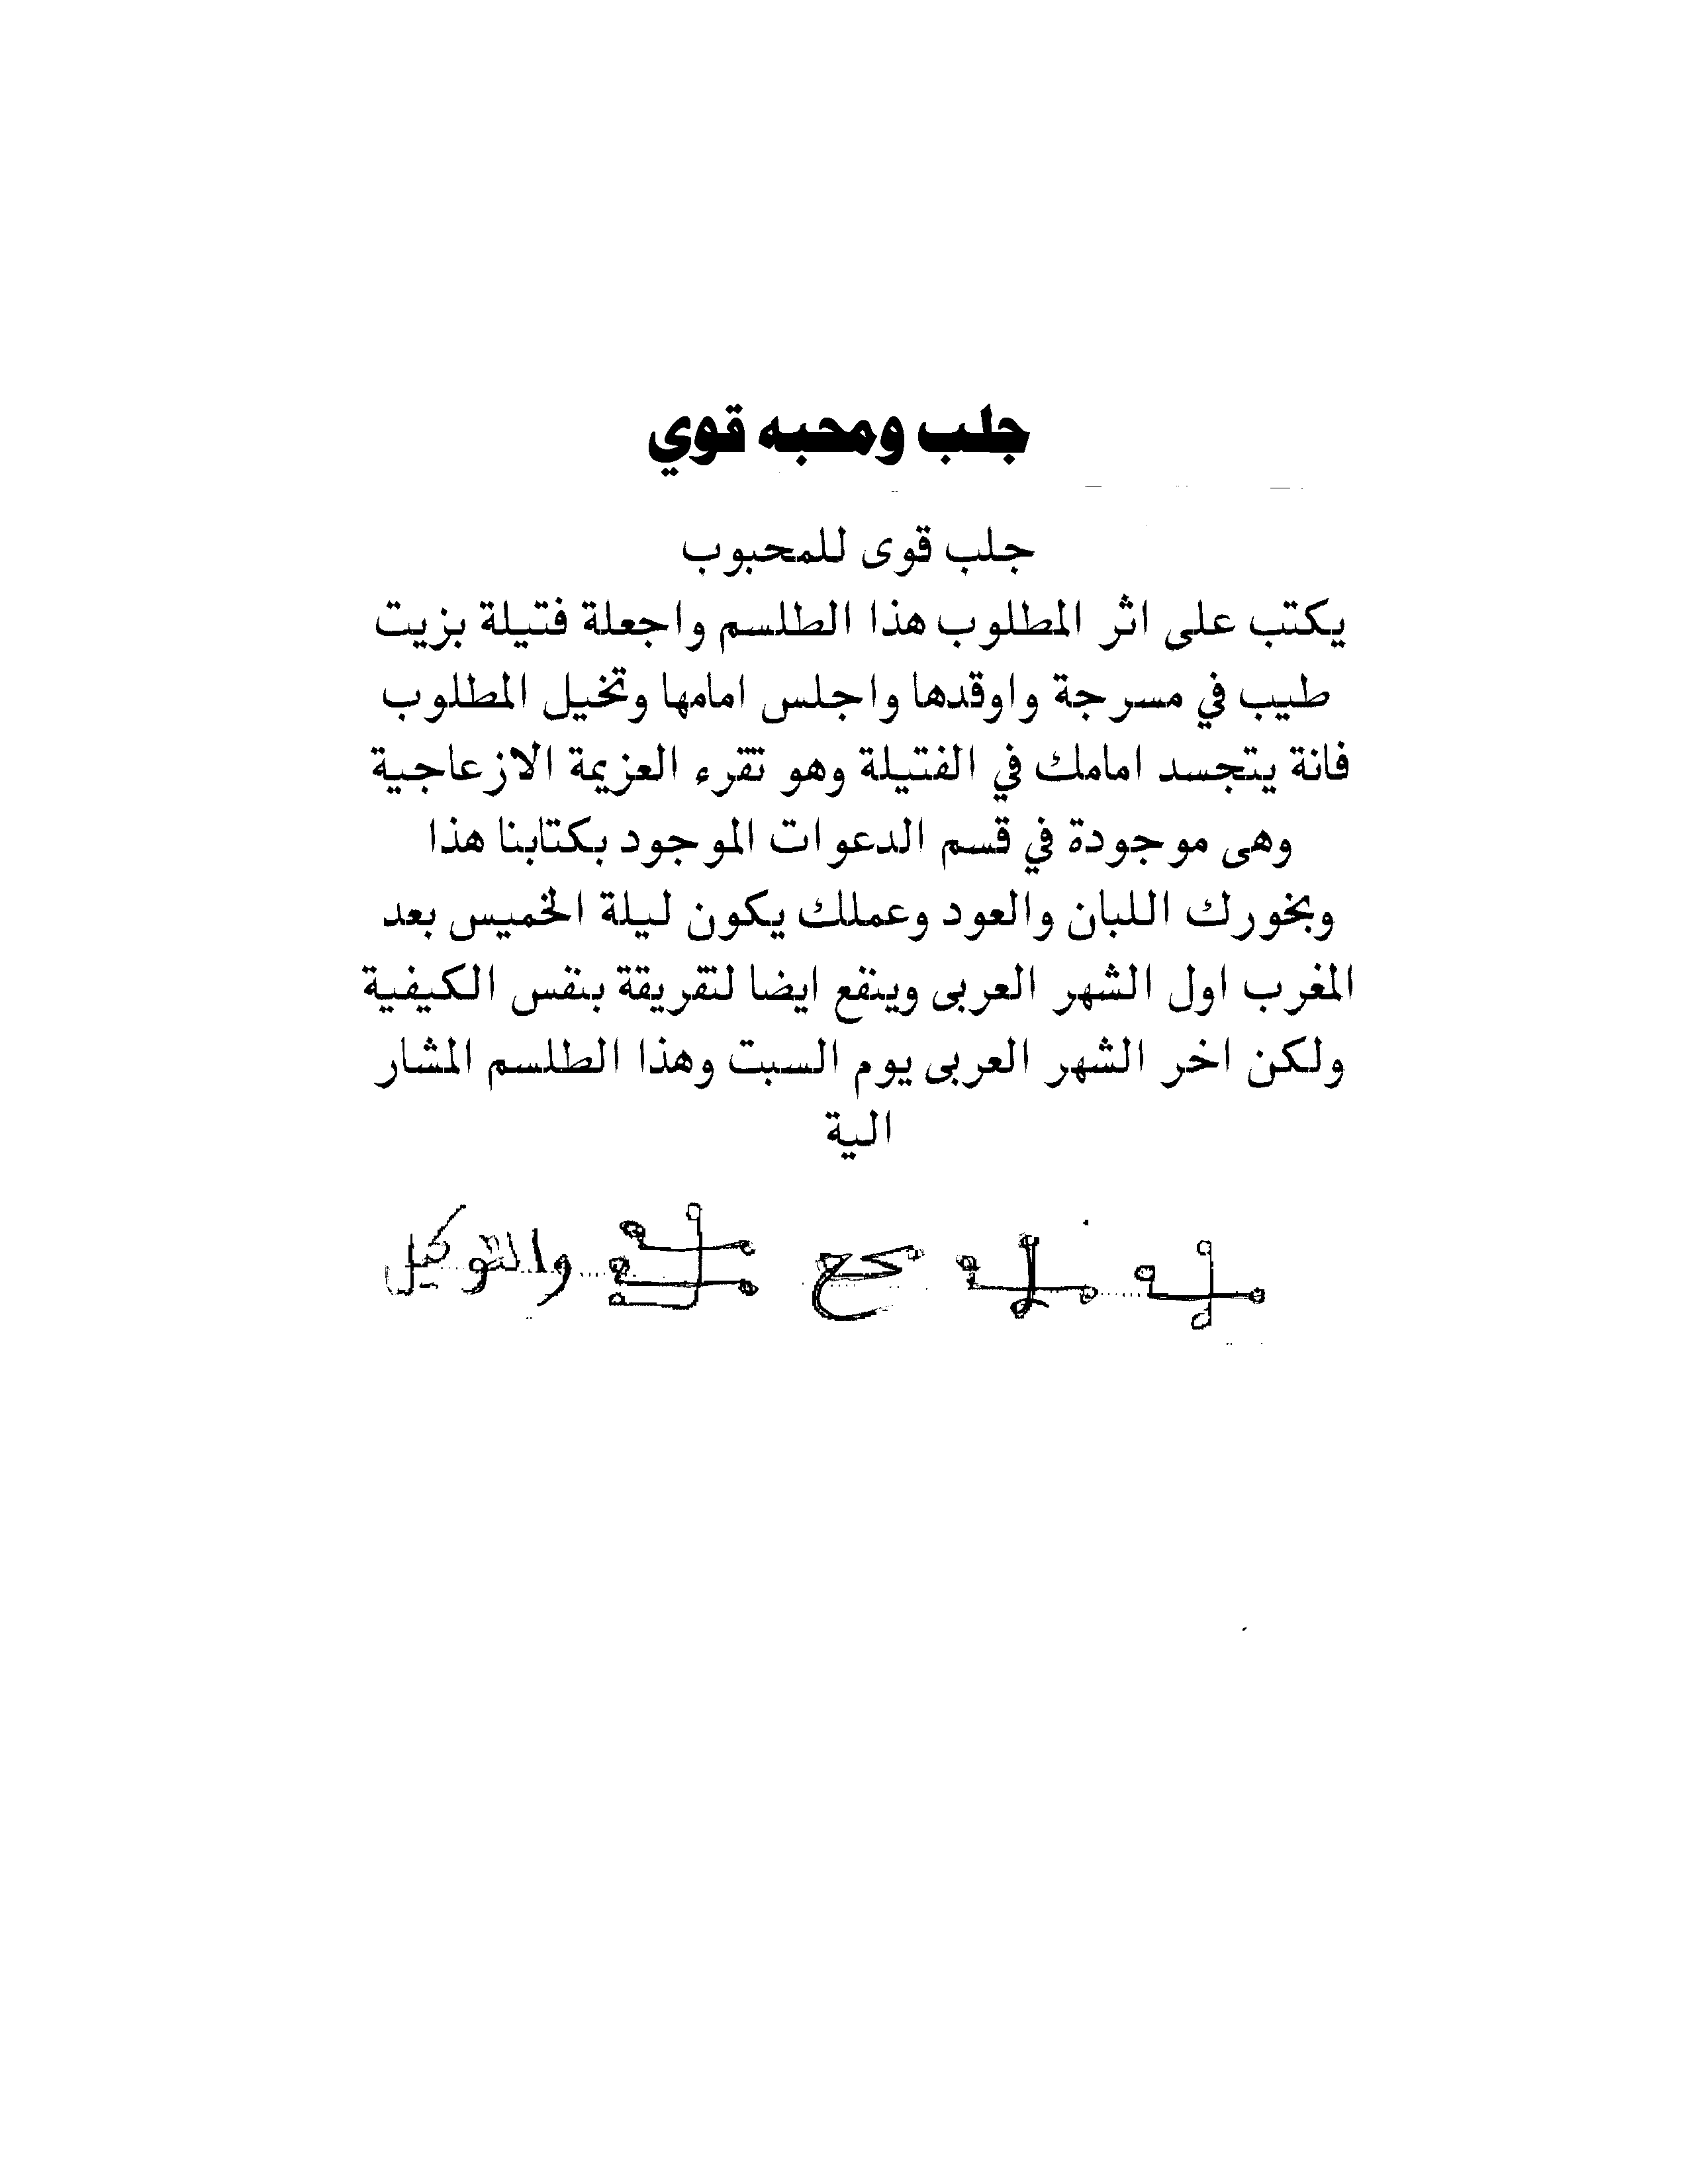 جلب ومحبه قوي
جلب قوى للمحبوب
يكتب على اثر المطلوب هذا الطلسم واجعلة فتيلة بزيت
طيب في مسرجة واوقدها واجلس امامها وتخيل المطلوب
فانة يتجسد امامك في الفتيلة وهو تقرء العزيمة الازعاجية
وهى موجودة في قسم الدعوات الموجود بكتابنا هذا
وبخورك اللبان والعود وعملك يكون ليلة الخميس بعد
المغرب اول الشهر العربى وينفع ايضا لتقريقة بنفس الكيفية
ولكن اخر الشهر العربى يوم السبت وهذا الطلسم المشار
الية
والتوكيل